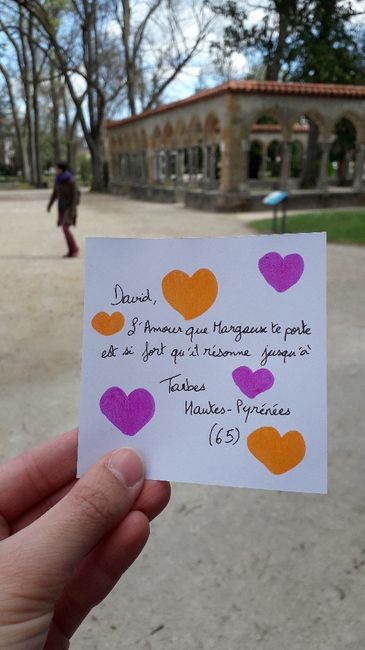 David,
L'Amour que Margause te porte
est si fort qu'il résonne jusqu'à
Tarbes
Hautes-Pyrénées
(65)